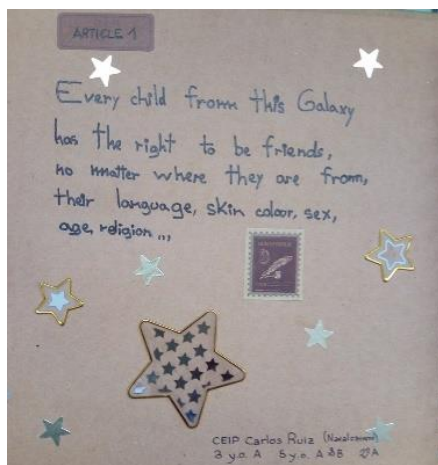 ARTICLE 1
Every child from this Galaxy
has the right to be friends,
no matter where they are from,
their language, skin colour, sex,
age, religion ...
CEIP Carlos Ruiz
3 y.o. A 5 y.o. A